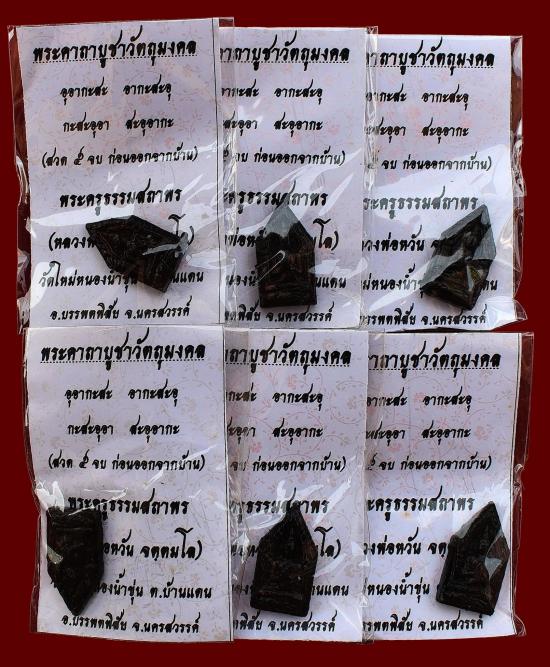 พระคาถาบูชาวัตถุมงคล
อุอากะสะ อากะสะอุ
กะสะอุอา สะอุอากะ
(สวด ๕ จบ ก่อนออกจากบ้าน)
พระครูธรรมสถาพร
(หลวงพ่ โล)
วัดใหม่หนองน้ำขุ่น านแดน
อ.บรรพตพิสัย จ.นครสวรรค์
าถาบูชาวัตถุมงคล
ะสะ อากะสะอุ
ะอุอา สะอุอากะ
จบ ก่อนออกจากบ้าน)
ครูธรรมสถาพร
พ่อหวัน โล)
พตพิสัย จ.นครสวรรค์
าถาบูชาวัตถุมงคล
กะสะ อากะสะอุ
สะอุอา สะอุอากะ
จบ ก่อนออกจากบ้าน)
ครูธรรมสถาพร
วงพ่อหวัน
ม่หนองน้ำขุ่น านแดน
รรพตพิสัย จ.นครสวรรค์
พระคาถาบูชาวัตถุมงคล
อุอากะสะ อากะสะอุ
กะสะอุอา สะอุอากะ
(สวด ๕ จบ ก่อนออกจากบ้าน)
พระครูธรรมสถาพร
พ่อหวัน จตฺตมโล)
องน้ำขุ่น ต.บ้านแดน
อ.บรรพตพิสัย จ.นครสวรรค์
าถาบูชาวัตถุมงคล
ะสะ อากะสะอุ
ะอุอา สะอุอากะ
จบ ก่อนออกจากบ้าน)
ครูธรรมสถาพร
ตมโล)
.บ้านแดน
พตพิสัย จ.นครสวรรค์
าถาบูชาวัตถุมงคล
กะสะ อากะสะอุ
สะอุอา สะอุอากะ
จบ ก่อนออกจากบ้าน)
ครูธรรมสถาพร
วงพ่อหวัน
ม่หนองน้ำขุ่น บ้านแดน
รรพตพิสัย จ.นครสวรรค์